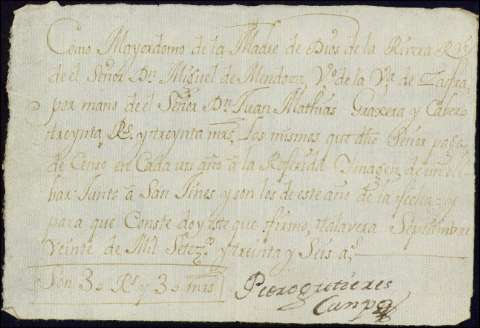 Como Mayordomo de la Madre de Dios de la Rivera R.
de el Señor Dn. Miguel de Mendoza, Vº de la Vª de Zafra,
por mano de el Señor Dn. Juan Mathias Graxera y
treynta Rs. y treynta mrs. los mismos que dho Señor paga
de Censo en Cada un año a la Referida Ymagen de
bar Junto à San Jines y son los de este año de la fecha; y
para que Conste doy este que firmo, talavera y Septiembre
Veinte de Mil Setezs. y treinta y Seis as.
Son 30 Rs. y 30 mrs.
Pedro gutieres
Campos